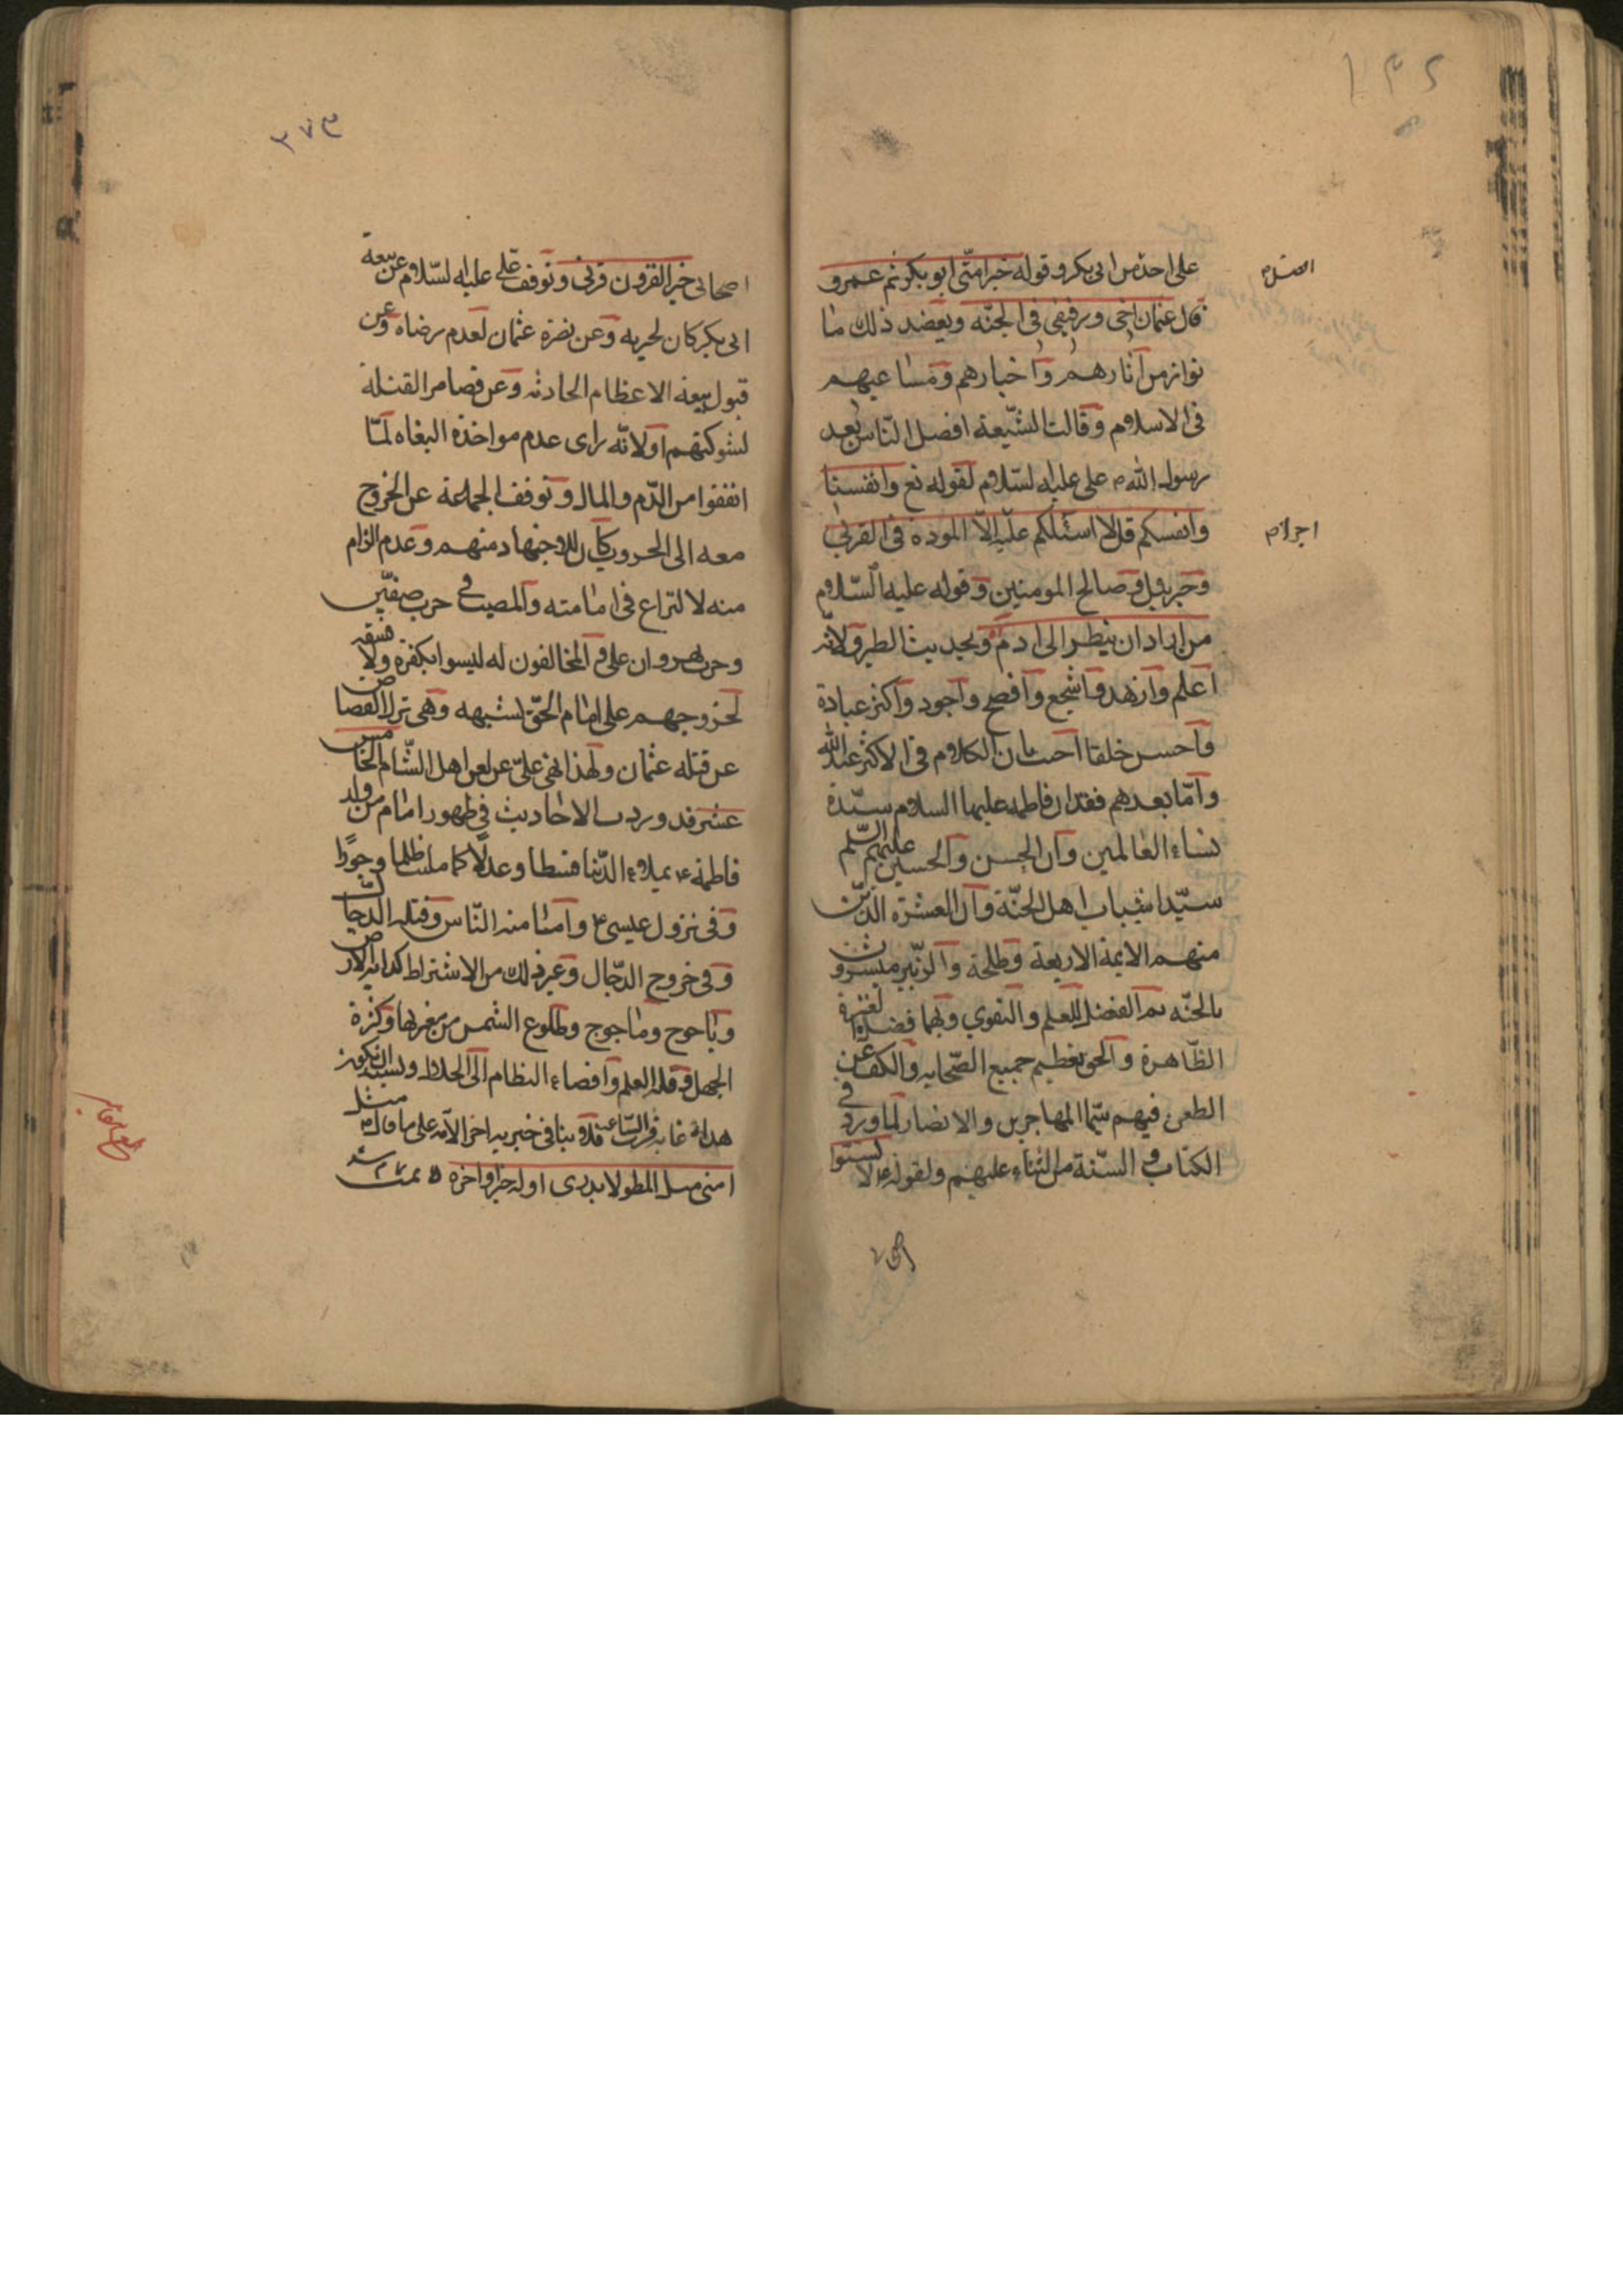 ١٣٢
افضل
على احد من ابى بكر و قوله خير امتى ابو بكر ثم عمر و
قال عثمان اخى و رفيقى فى الجنه و يعضد ذلك ما
تواتر من آثارهم و اخبارهم و مساعيهم
فى الاسلام و قالت الشيعة افضل الناس بعد
رسول الله ص على عليه السلام لقوله تع و انفسنا
و انفسكم قل لا اسئلكم عليه الا المودة فى القربى
اجرا م
و جبريل و صالح المومنين و قوله عليه السلام
من اراد ان ينظر الى ادم و بحديث الطير و لانه
اعلم و ازهد و اشجع و افصح و اجود و اكثر عبادة
و احسن خلقا بان الكلام فى الاكثر عند الله
و اما بعدهم فقد ان فاطمه عليها السلام سيدة
نساء العالمين و ان الحسن و الحسين عليهم السلم
سيدا شباب اهل الجنة و ان العشرة الذين
منهم الايمة الاربعة و طلحة و الزبير مبشرون
بالجنه ثم الفضل للعلم و التقوى و
الظاهرة و الحق تعظيم جميع الصحابه و الكف عن
الطعن فيهم سيما المهاجرين و الانصار لما ورد فى
الكتاب و السنة من الثناء عليهم و لقوله ع لا تسبوا
٣٧٣
اصحابى خير القرون قرنى و توقف على عليه السلام عن بيعة
ابى بكر كان لحزنه و عن نصرة عثمان لعدم رضاه و عن
قبول بيعة الاعظام الحادثه و عن قصاص القتلة
لشوكتهم او لانه راى عدم مواخذة البغاه لما
اتفقوا من الدم و المال و توقف الجماعة عن الخروج
معه الى الحروب كان للاجتهاد منهم و عدم الزام
منه لا لنزاع فى امامته و المصيب فى حرب صفين
و حرب نهروان على و المخالفون له ليسوا بكفرة و لا فسقه
لخروجهم على امام الحق لشبهه و هى ترك القصاص
عن قتلة عثمان و لهذا نهى على عن لعن اهل الشام الخامس
عشر قد وردت الاحاديث فى ظهور امام من ولد
فاطمة ع يملاء الدنيا قسطا و عدلا كما ملئت ظلما و جورا
و فى نزول عيسى ع و امنا منه الناس و قتله الدجال
و فى خروج الدجال و غير ذلك من الاشتراط كدابة الارض
و ياجوج و ماجوج و طلوع الشمس من مغربها و كثرة
الجهل و قلة العلم و افضاء النظام الى
فلا ينافى خيريه اخر الامه على ما قال ع مثل
امتى مثل المطر لا يدرى اوله خير او اخره